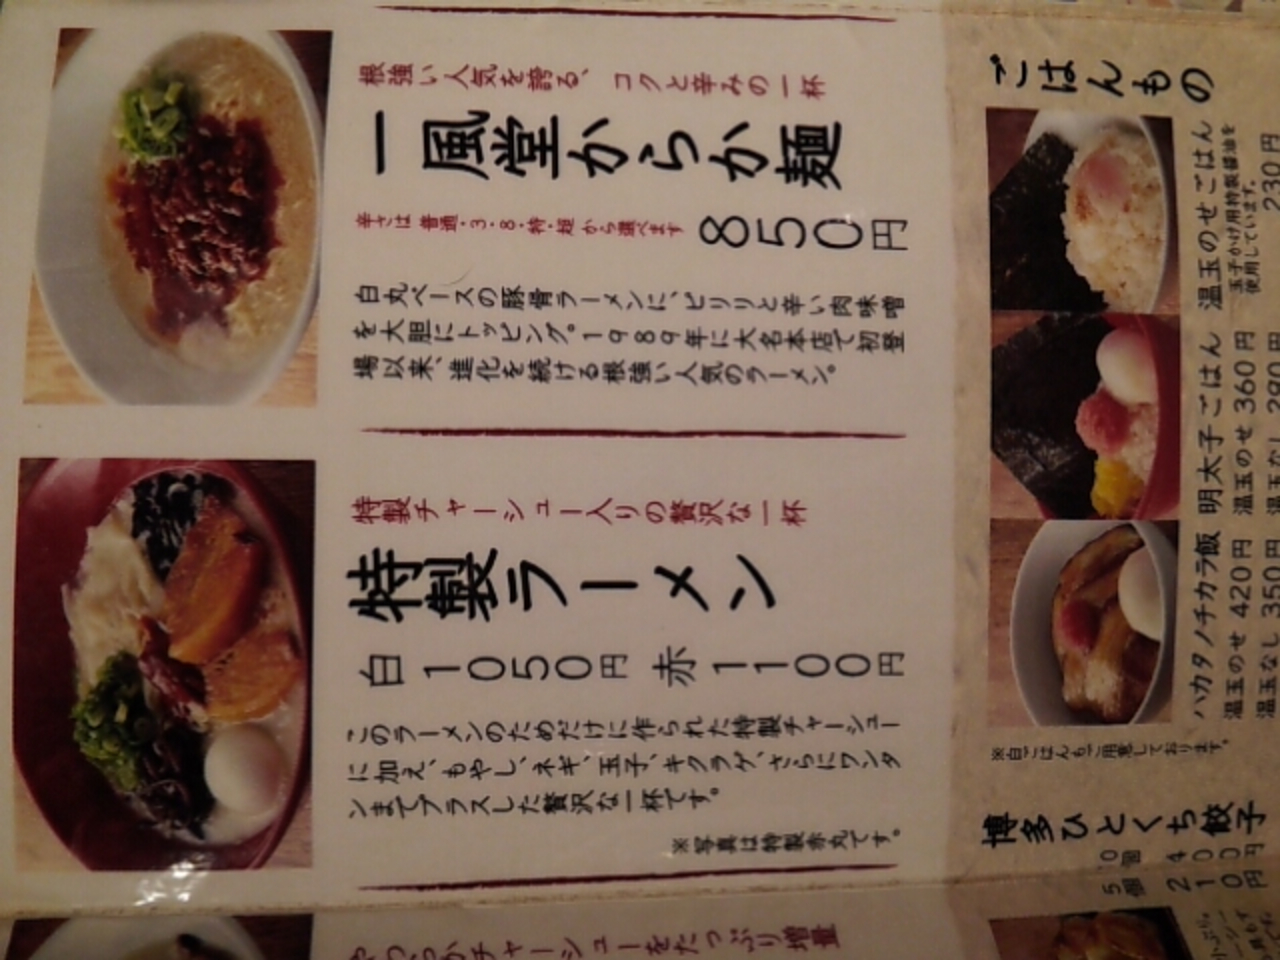 根強い人気を誇る、コクと辛みの一杯
一風堂からか麺
辛さは 普通・3・8・特・超 から選べます
850円
白丸ベースの豚骨ラーメンに、ピリリと辛い肉味噌
を大胆にトッピング。1989年に大名本店で初登
場以来、進化を続ける根強い人気のラーメン。
特製チャーシュー入りの贅沢な一杯
特製ラーメン
白 1050円 赤 1100円
このラーメンのためだけに作られた特製チャーシュー
に加え、もやし、ネギ、玉子、キクラゲ、さらにワンタ
ンまでプラスした贅沢な一杯です。
※写真は特製赤丸です。
やわらかチャーシューをたっぷり増量
ごはんもの
温玉のせごはん
玉子かけ用特製醤油を
使用しています。
230円
明太子ごはん
温玉のせ 360円
温玉なし 290円
ハカタノチカラ飯
温玉のせ 420円
温玉なし 350円
※白ごはんもご用意しております。
博多ひとくち餃子
5個 210円
10個 400円